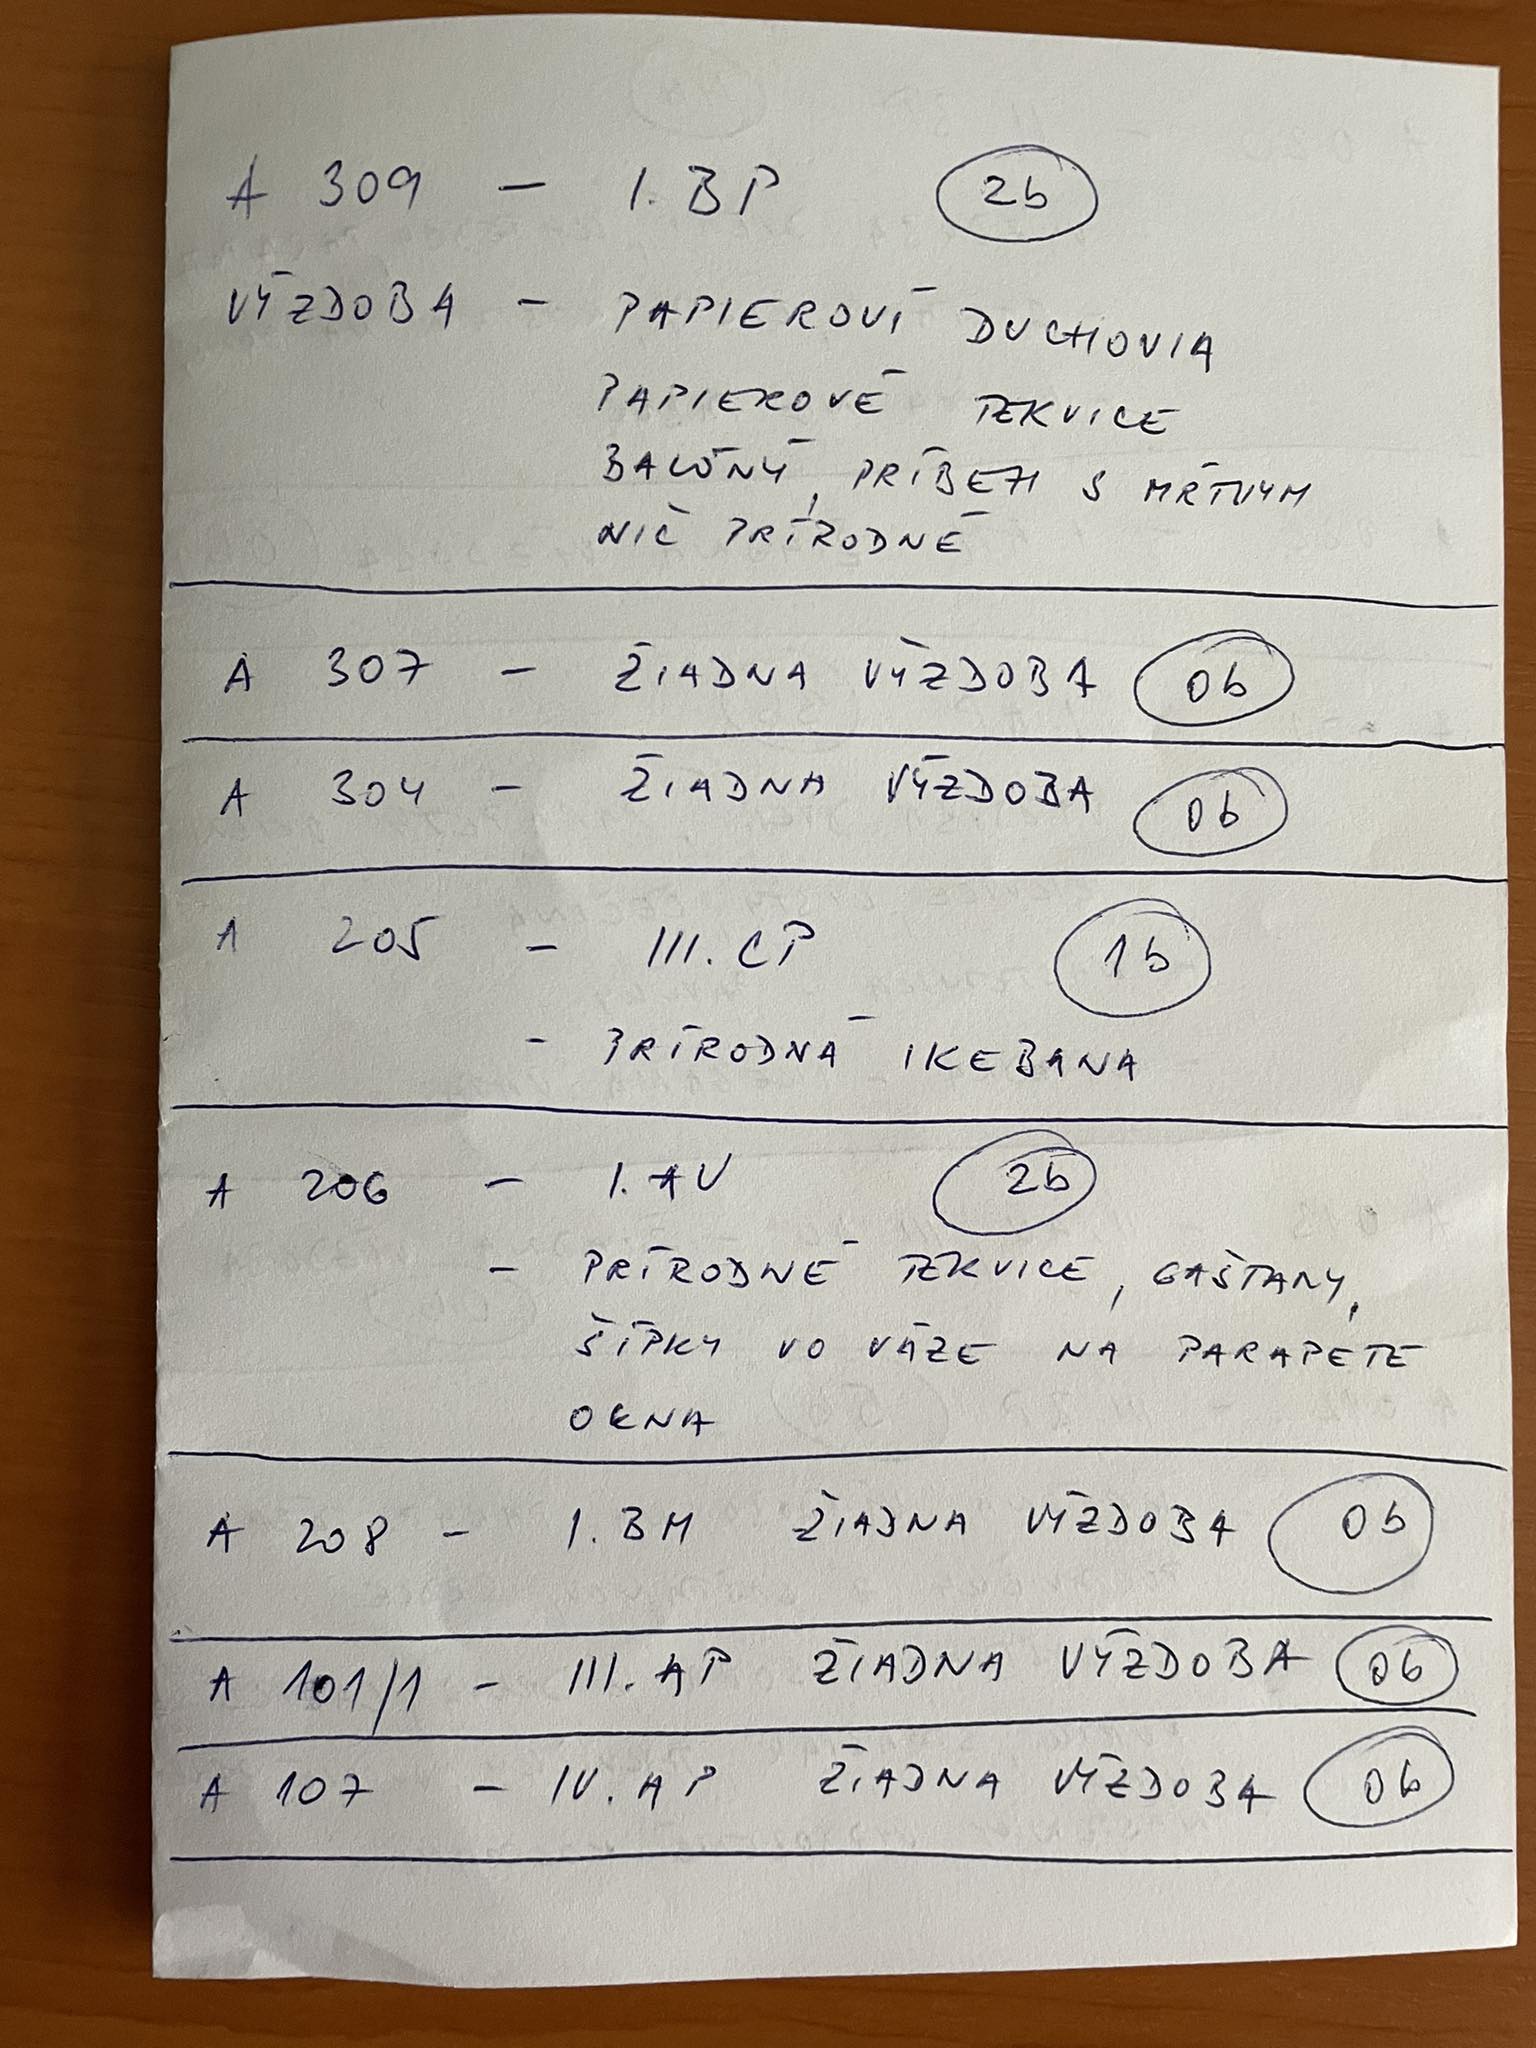 A 309 - I. BP 2b
VÝZDOBA - PAPIEROVÍ DUCHOVIA
PAPIEROVÉ TEKVICE
BALÓNY, PRÍBEH S MŔTVYM
NIČ PRÍRODNÉ
A 307 - ŽIADNA VÝZDOBA 0b
A 304 - ŽIADNA VÝZDOBA 0b
A 205 - III. CP 1b
- PRÍRODNÁ IKEBANA
A 206 - I. AV 2b
- PRÍRODNÉ TEKVICE, GAŠTANY,
ŠÍPKY VO VÁZE NA PARAPETE
OKNA
A 208 - I. BM ŽIADNA VÝZDOBA 0b
A 101/1 - III. AP ŽIADNA VÝZDOBA 0b
A 107 - IV. AP ŽIADNA VÝZDOBA 0b